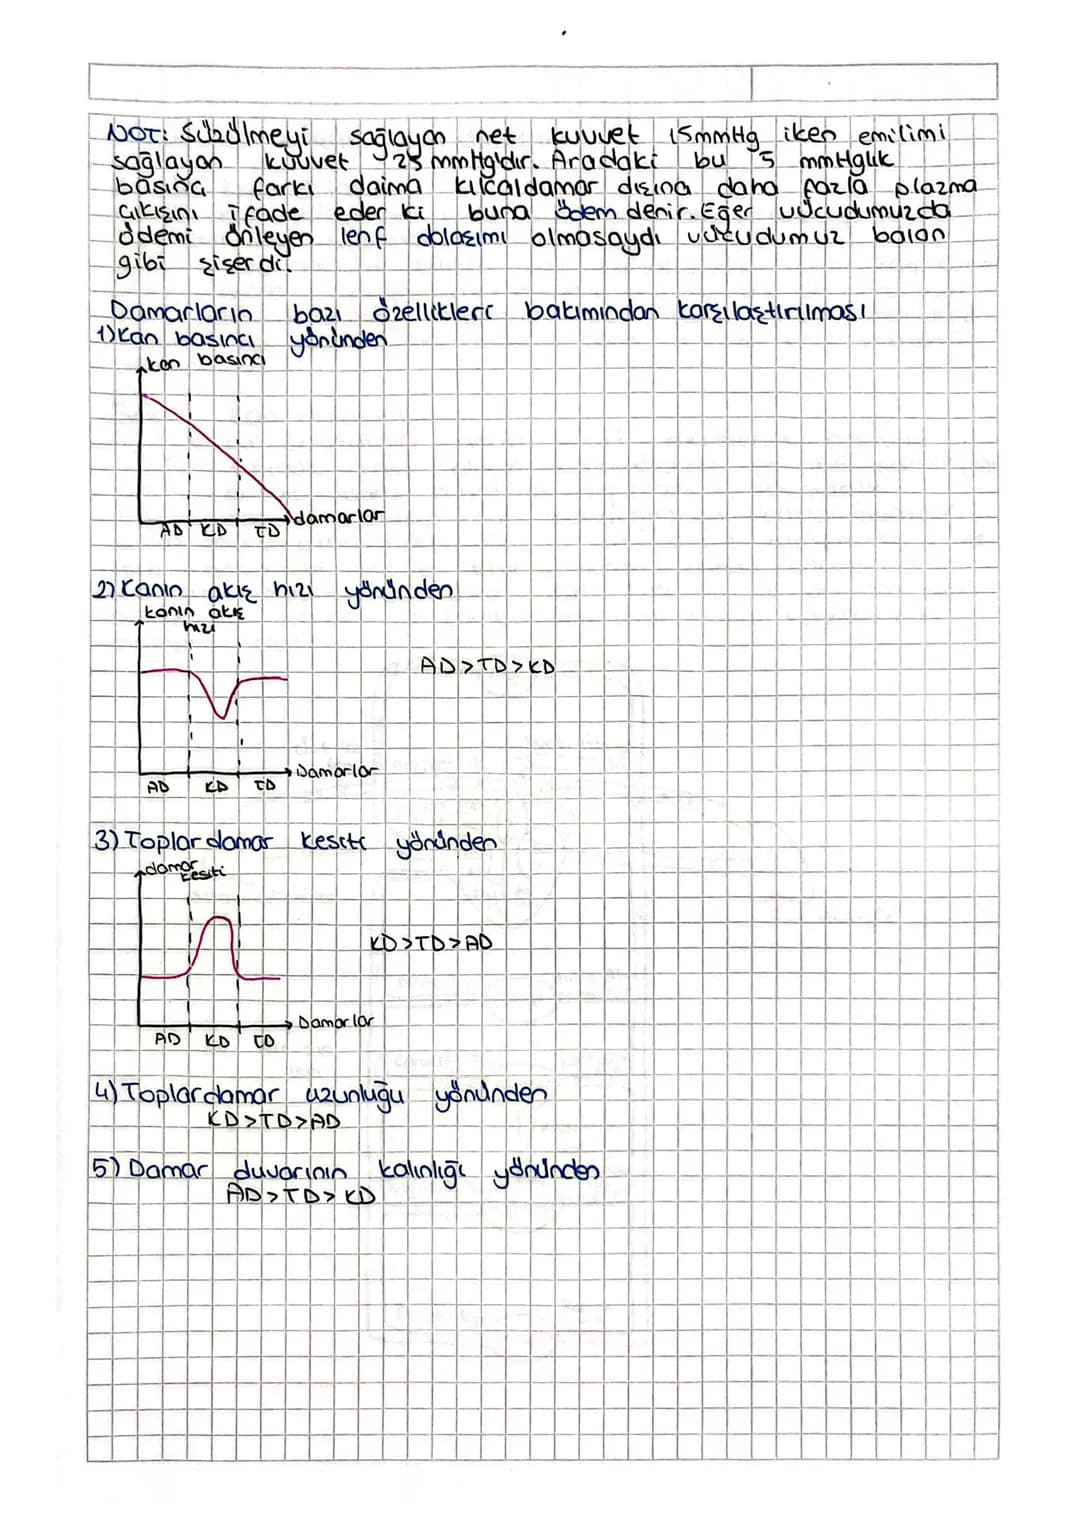 NOT: Süzülmeyi sağlayan net kuvvet 15mmHg iken emilimi
sağlayan kuvvet 25 mmHg'dır. Aradaki bu 5 mmHglık
basınç farkı daima kılcaldamar dışına daha fazla plazma
çıkışını ifade eder ki buna ödem denir. Eğer vücudumuzda
ödemi önleyen lenf dolaşımı olmasaydı vücudumuz balon
gibi şişerdi.
Damarların bazı özellikleri bakımından karşılaştırılması
1) Kan basıncı yönünden
kan basıncı
damarlar
AD KD TD
2) Kanın akış hızı yönünden
kanın akış
hızı
AD>TD>KD
Damarlar
AD KD TD
3) Toplar damar kesiti yönünden
damar
kesiti
KD>TD>AD
Damarlar
AD KD TD
4) Toplardamar uzunluğu yönünden
KD>TD>AD
5) Damar duvarının kalınlığı yönünden
AD>TD>KD